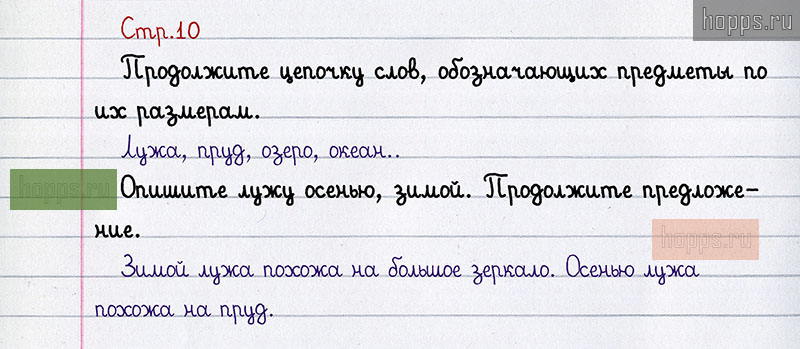 hopps.ru
Стр.10
Продолжите цепочку слов, обозначающих предметы по
их размерам.
Лужа, пруд, озеро, океан..
hopps.ru
Опишите лужу осенью, зимой. Продолжите предложе-
ние.
hopps.ru
Зимой лужа похожа на большое зеркало. Осенью лужа
похожа на пруд.